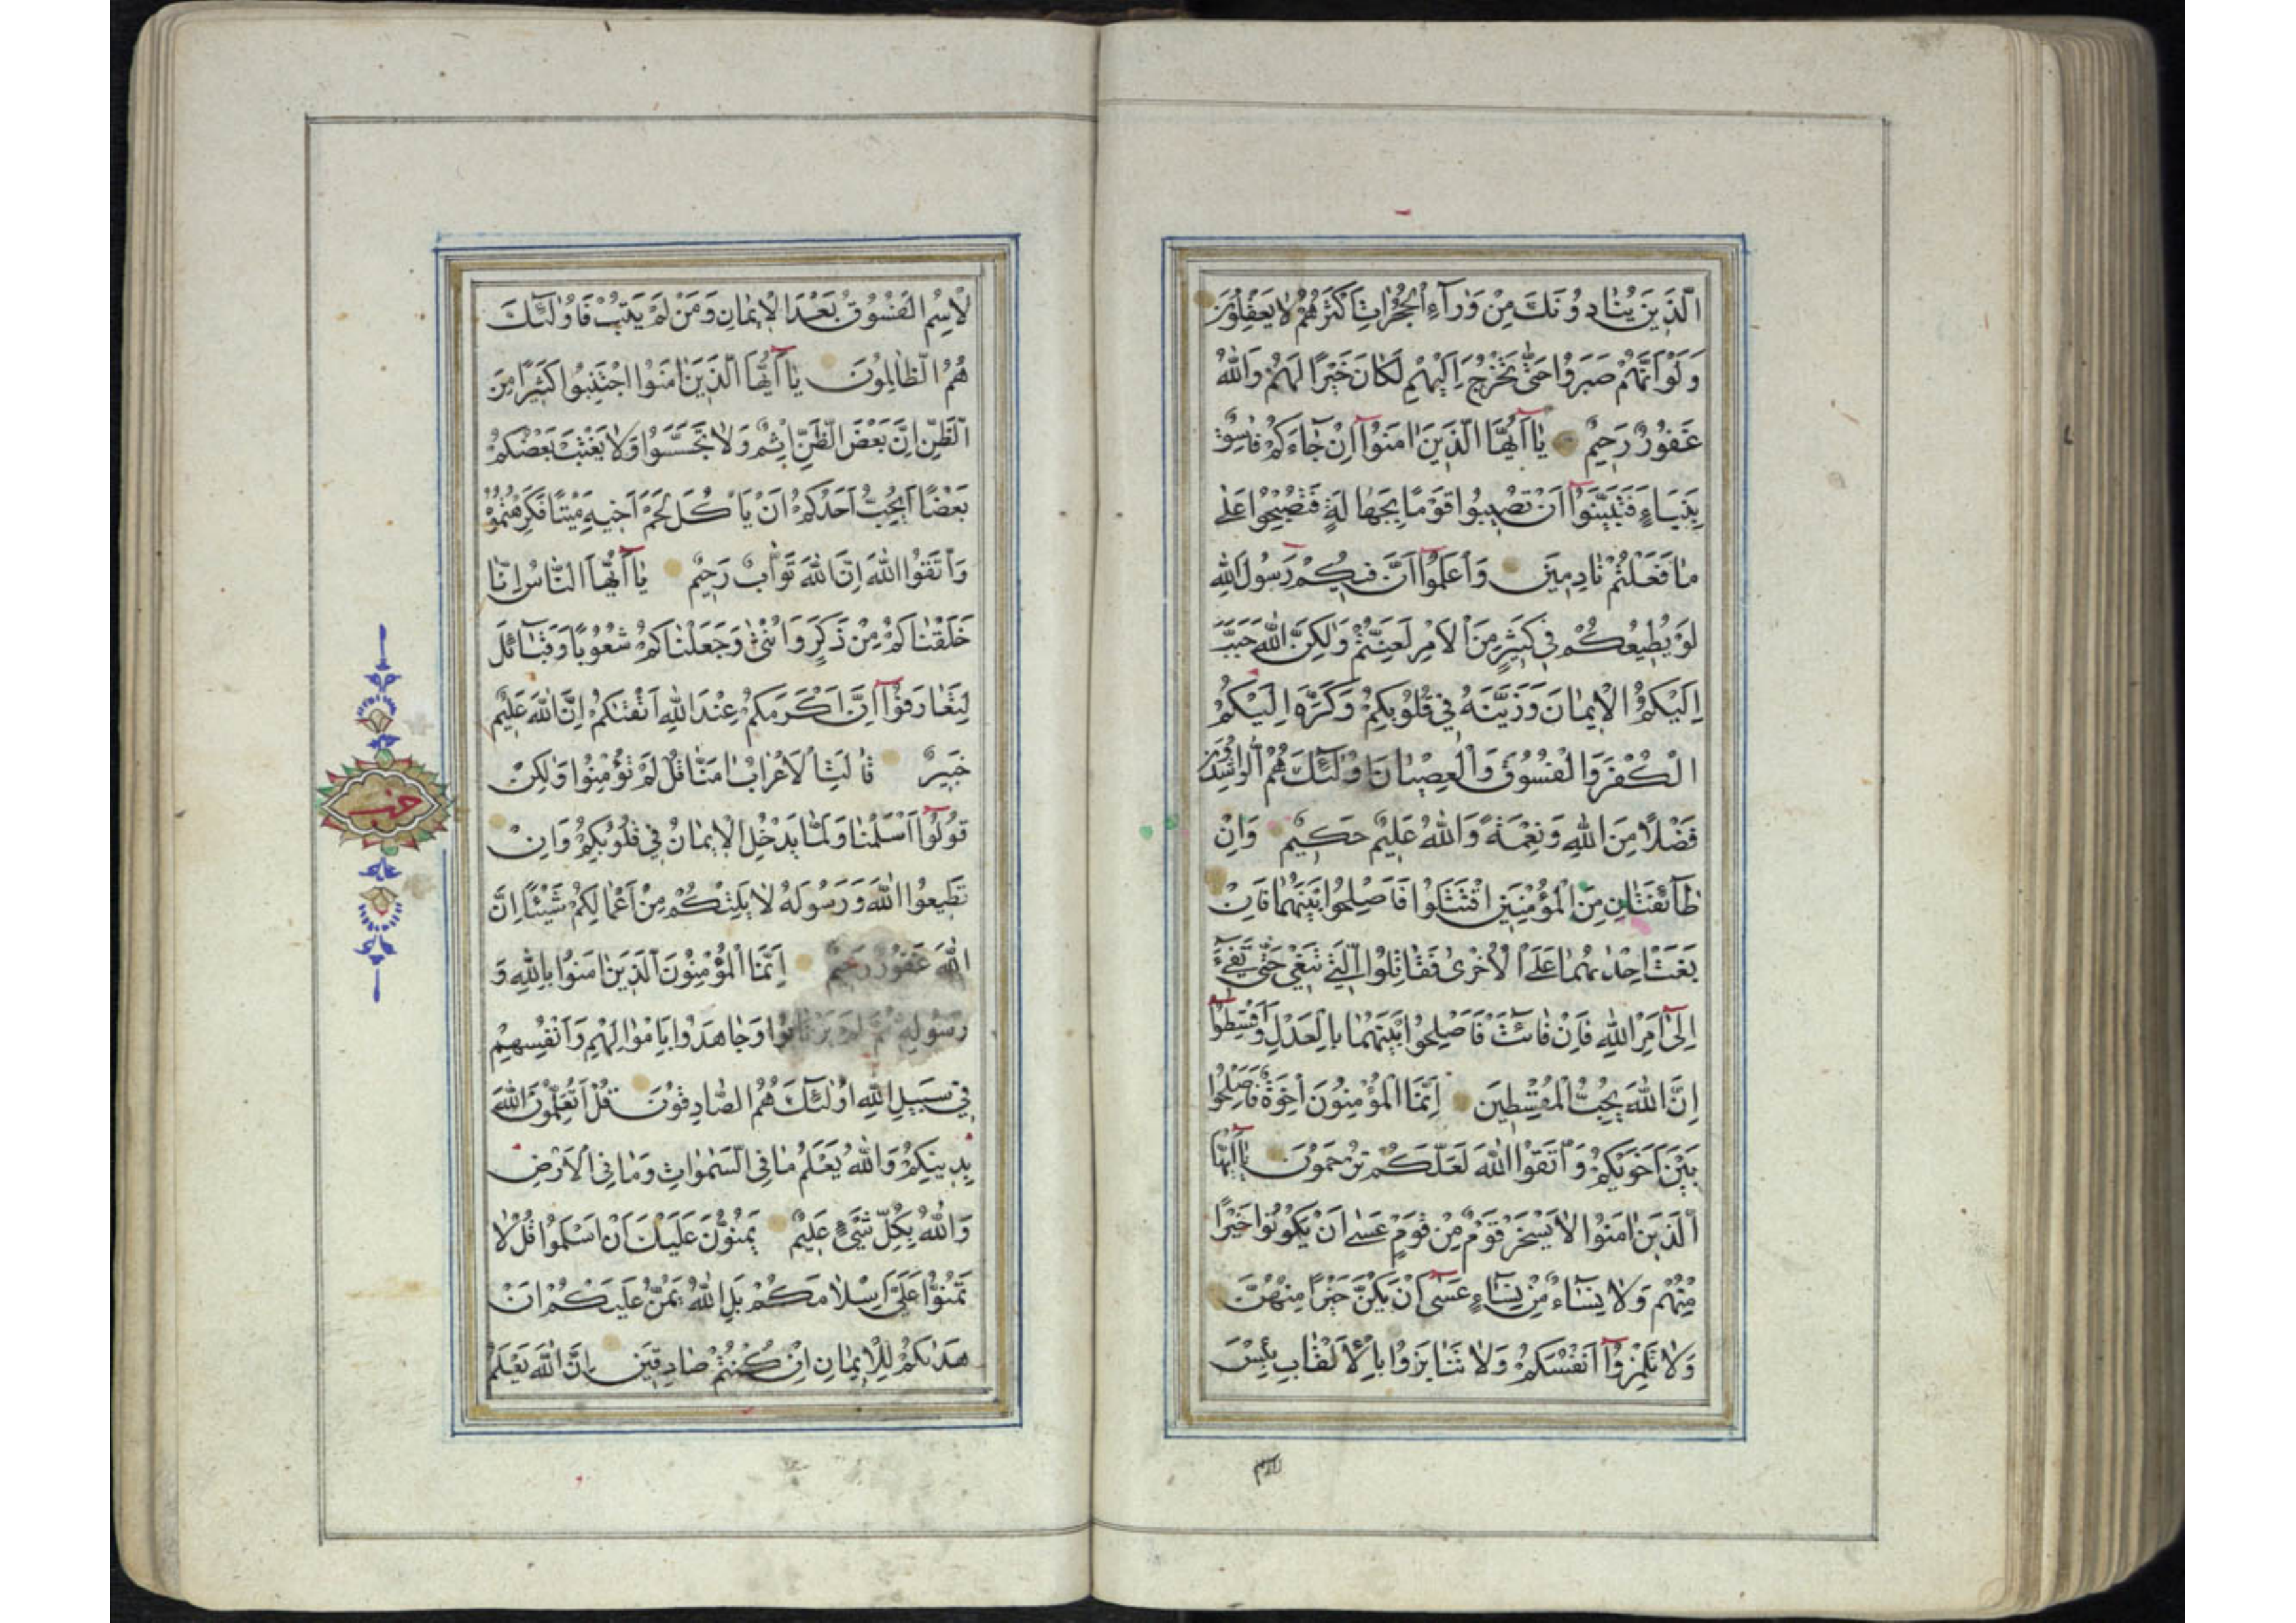 الَّذِينَ يُنَادُونَكَ مِنْ وَرَآءِ الْحُجُرَاتِ اَكْثَرُهُمْ لَا يَعْقِلُونَ
وَلَوْ اَنَّهُمْ صَبَرُوا حَتّٰى تَخْرُجَ اِلَيْهِمْ لَكَانَ خَيْرًا لَهُمْ وَاللّٰهُ
غَفُورٌ رَحِيمٌ يَآ اَيُّهَا الَّذِينَ اٰمَنُوٓا اِنْ جَآءَكُمْ فَاسِقٌ
بِنَبَاءٍ فَتَبَيَّنُوٓا اَنْ تُصِيبُوا قَوْمًا بِجَهَالَةٍ فَتُصْبِحُوا عَلٰى
مَا فَعَلْتُمْ نَادِمِينَ وَاعْلَمُوٓا اَنَّ فِيكُمْ رَسُولَ اللّٰهِ
لَوْ يُطِيعُكُمْ فِي كَثِيرٍ مِنَ الْاَمْرِ لَعَنِتُّمْ وَلٰكِنَّ اللّٰهَ حَبَّبَ
اِلَيْكُمُ الْاِيمَانَ وَزَيَّنَهُ فِي قُلُوبِكُمْ وَكَرَّهَ اِلَيْكُمُ
الْكُفْرَ وَالْفُسُوقَ وَالْعِصْيَانَ اُولٰٓئِكَ هُمُ الرَّاشِدُونَ
فَضْلًا مِنَ اللّٰهِ وَنِعْمَةً وَاللّٰهُ عَلِيمٌ حَكِيمٌ وَاِنْ
طَآئِفَتَانِ مِنَ الْمُؤْمِنِينَ اقْتَتَلُوا فَاَصْلِحُوا بَيْنَهُمَا فَاِنْ
بَغَتْ اِحْدٰىهُمَا عَلَى الْاُخْرٰى فَقَاتِلُوا الَّتِي تَبْغِي حَتّٰى تَفِيٓءَ
اِلٰٓى اَمْرِ اللّٰهِ فَاِنْ فَآئَتْ فَاَصْلِحُوا بَيْنَهُمَا بِالْعَدْلِ وَاَقْسِطُوٓا
اِنَّ اللّٰهَ يُحِبُّ الْمُقْسِطِينَ اِنَّمَا الْمُؤْمِنُونَ اِخْوَةٌ فَاَصْلِحُوا
بَيْنَ اَخَوَيْكُمْ وَاتَّقُوا اللّٰهَ لَعَلَّكُمْ تُرْحَمُونَ يَآ اَيُّهَا
الَّذِينَ اٰمَنُوا لَا يَسْخَرْ قَوْمٌ مِنْ قَوْمٍ عَسٰى اَنْ يَكُونُوا خَيْرًا
مِنْهُمْ وَلَا نِسَآءٌ مِنْ نِسَآءٍ عَسٰٓى اَنْ يَكُنَّ خَيْرًا مِنْهُنَّ
وَلَا تَلْمِزُوٓا اَنْفُسَكُمْ وَلَا تَنَابَزُوا بِالْاَلْقَابِ بِئْسَ
الْاِسْمُ الْفُسُوقُ بَعْدَ الْاِيمَانِ وَمَنْ لَمْ يَتُبْ فَاُولٰٓئِكَ
هُمُ الظَّالِمُونَ يَآ اَيُّهَا الَّذِينَ اٰمَنُوا اجْتَنِبُوا كَثِيرًا مِنَ
الظَّنِّ اِنَّ بَعْضَ الظَّنِّ اِثْمٌ وَلَا تَجَسَّسُوا وَلَا يَغْتَبْ بَعْضُكُمْ
بَعْضًا اَيُحِبُّ اَحَدُكُمْ اَنْ يَاْكُلَ لَحْمَ اَخِيهِ مَيْتًا فَكَرِهْتُمُوهُ
وَاتَّقُوا اللّٰهَ اِنَّ اللّٰهَ تَوَّابٌ رَحِيمٌ يَآ اَيُّهَا النَّاسُ اِنَّا
خَلَقْنَاكُمْ مِنْ ذَكَرٍ وَاُنْثٰى وَجَعَلْنَاكُمْ شُعُوبًا وَقَبَآئِلَ
لِتَعَارَفُوٓا اِنَّ اَكْرَمَكُمْ عِنْدَ اللّٰهِ اَتْقٰيكُمْ اِنَّ اللّٰهَ عَلِيمٌ
خَبِيرٌ قَالَتِ الْاَعْرَابُ اٰمَنَّا قُلْ لَمْ تُؤْمِنُوا وَلٰكِنْ
حزب
قُولُوٓا اَسْلَمْنَا وَلَمَّا يَدْخُلِ الْاِيمَانُ فِي قُلُوبِكُمْ وَاِنْ
تُطِيعُوا اللّٰهَ وَرَسُولَهُ لَا يَلِتْكُمْ مِنْ اَعْمَالِكُمْ شَيْئًا اِنَّ
اللّٰهَ غَفُورٌ رَحِيمٌ اِنَّمَا الْمُؤْمِنُونَ الَّذِينَ اٰمَنُوا بِاللّٰهِ وَ
رَسُولِهِ ثُمَّ لَمْ يَرْتَابُوا وَجَاهَدُوا بِاَمْوَالِهِمْ وَاَنْفُسِهِمْ
فِي سَبِيلِ اللّٰهِ اُولٰٓئِكَ هُمُ الصَّادِقُونَ قُلْ اَتُعَلِّمُونَ اللّٰهَ
بِدِينِكُمْ وَاللّٰهُ يَعْلَمُ مَا فِي السَّمٰوَاتِ وَمَا فِي الْاَرْضِ
وَاللّٰهُ بِكُلِّ شَيْءٍ عَلِيمٌ يَمُنُّونَ عَلَيْكَ اَنْ اَسْلَمُوا قُلْ لَا
تَمُنُّوا عَلَيَّ اِسْلَامَكُمْ بَلِ اللّٰهُ يَمُنُّ عَلَيْكُمْ اَنْ
هَدٰيكُمْ لِلْاِيمَانِ اِنْ كُنْتُمْ صَادِقِينَ اِنَّ اللّٰهَ يَعْلَمُ